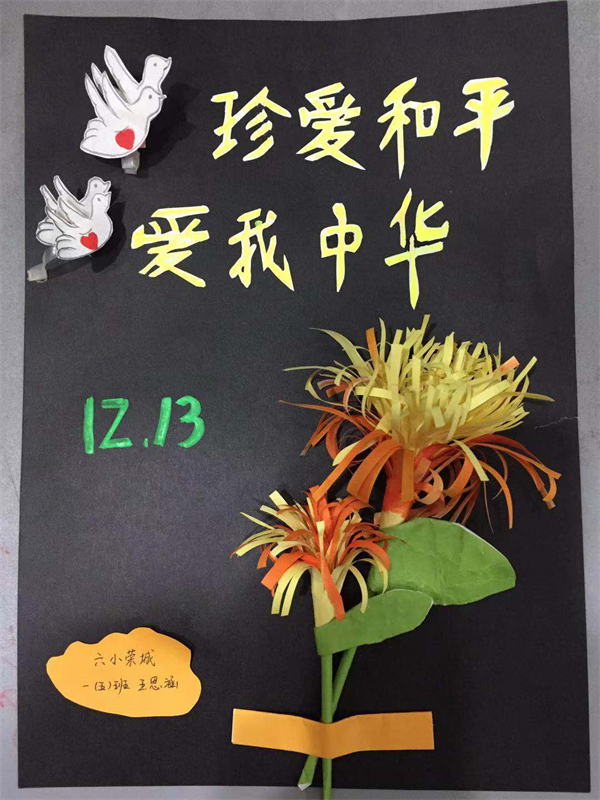 珍爱和平
爱我中华
12.13
六小荣城
一(五)班 王思涵